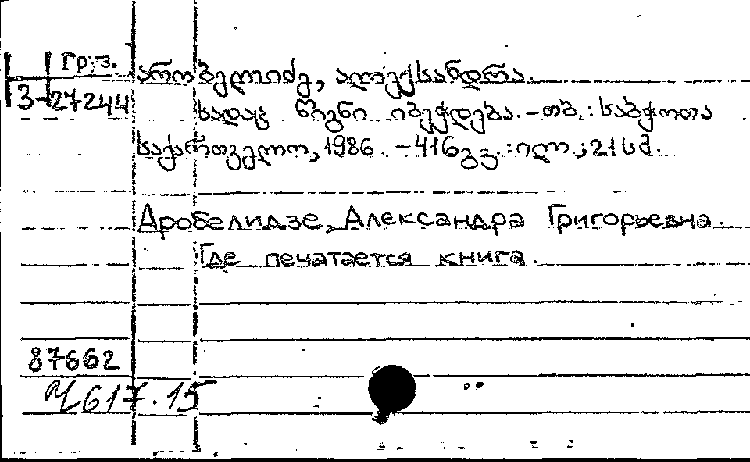 Груз.
არობელიძე, ალექსანდრა.
3-27244
სადაც წიგნი იბეჭდება. - თბ. : საბჭოთა
საქართველო, 1986. - 416გვ. : ილ. ; 21სმ.
Аробелидзе, Александра Григорьевна.
Где печатается книга.
87662
617.15